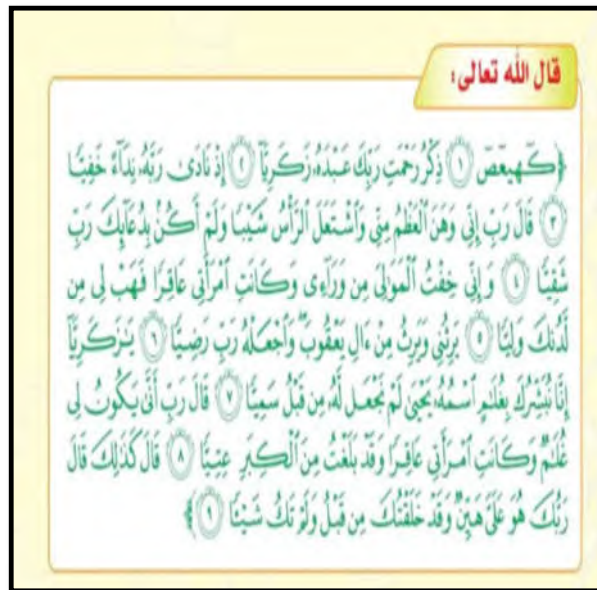 قال الله تعالى:
﴿كٓهيعٓصٓ ۝١ ذِكْرُ رَحْمَتِ رَبِّكَ عَبْدَهُۥ زَكَرِيَّآ ۝٢ إِذْ نَادَىٰ رَبَّهُۥ نِدَآءً خَفِيًّا
۝٣ قَالَ رَبِّ إِنِّى وَهَنَ ٱلْعَظْمُ مِنِّى وَٱشْتَعَلَ ٱلرَّأْسُ شَيْبًا وَلَمْ أَكُنۢ بِدُعَآئِكَ رَبِّ
شَقِيًّا ۝٤ وَإِنِّى خِفْتُ ٱلْمَوَٰلِىَ مِن وَرَآءِى وَكَانَتِ ٱمْرَأَتِى عَاقِرًا فَهَبْ لِى مِن
لَّدُنكَ وَلِيًّا ۝٥ يَرِثُنِى وَيَرِثُ مِنْ ءَالِ يَعْقُوبَ ۖ وَٱجْعَلْهُ رَبِّ رَضِيًّا ۝٦ يَٰزَكَرِيَّآ
إِنَّا نُبَشِّرُكَ بِغُلَٰمٍ ٱسْمُهُۥ يَحْيَىٰ لَمْ نَجْعَل لَّهُۥ مِن قَبْلُ سَمِيًّا ۝٧ قَالَ رَبِّ أَنَّىٰ يَكُونُ لِى
غُلَٰمٌ وَكَانَتِ ٱمْرَأَتِى عَاقِرًا وَقَدْ بَلَغْتُ مِنَ ٱلْكِبَرِ عِتِيًّا ۝٨ قَالَ كَذَٰلِكَ قَالَ
رَبُّكَ هُوَ عَلَىَّ هَيِّنٌ وَقَدْ خَلَقْتُكَ مِن قَبْلُ وَلَمْ تَكُ شَيْـًٔا ۝٩﴾